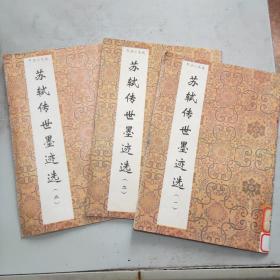 苏轼传世墨迹选（三）
苏轼传世墨迹选（二）
苏轼传世墨迹选（一）